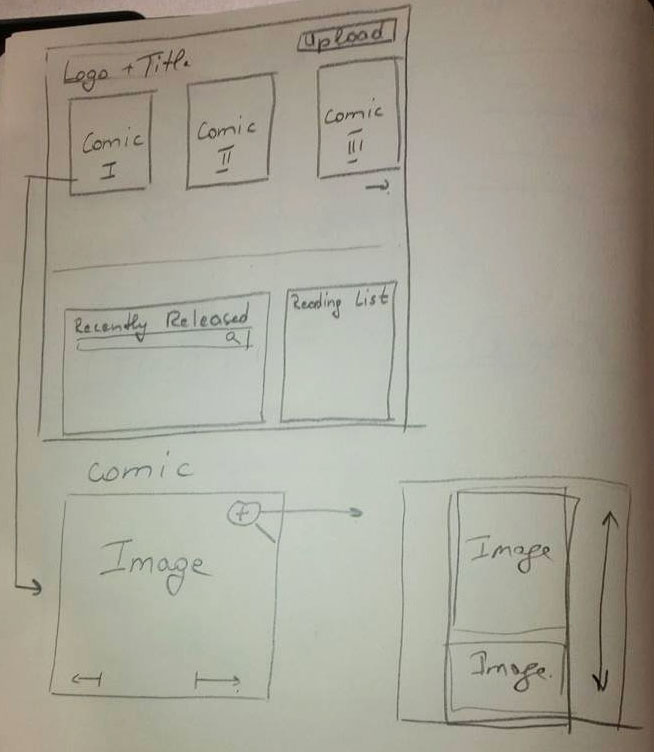 Upload
Logo + Title
Comic I
Comic II
Comic III
Recently Released
Reading List
comic
Image
Image
Image.